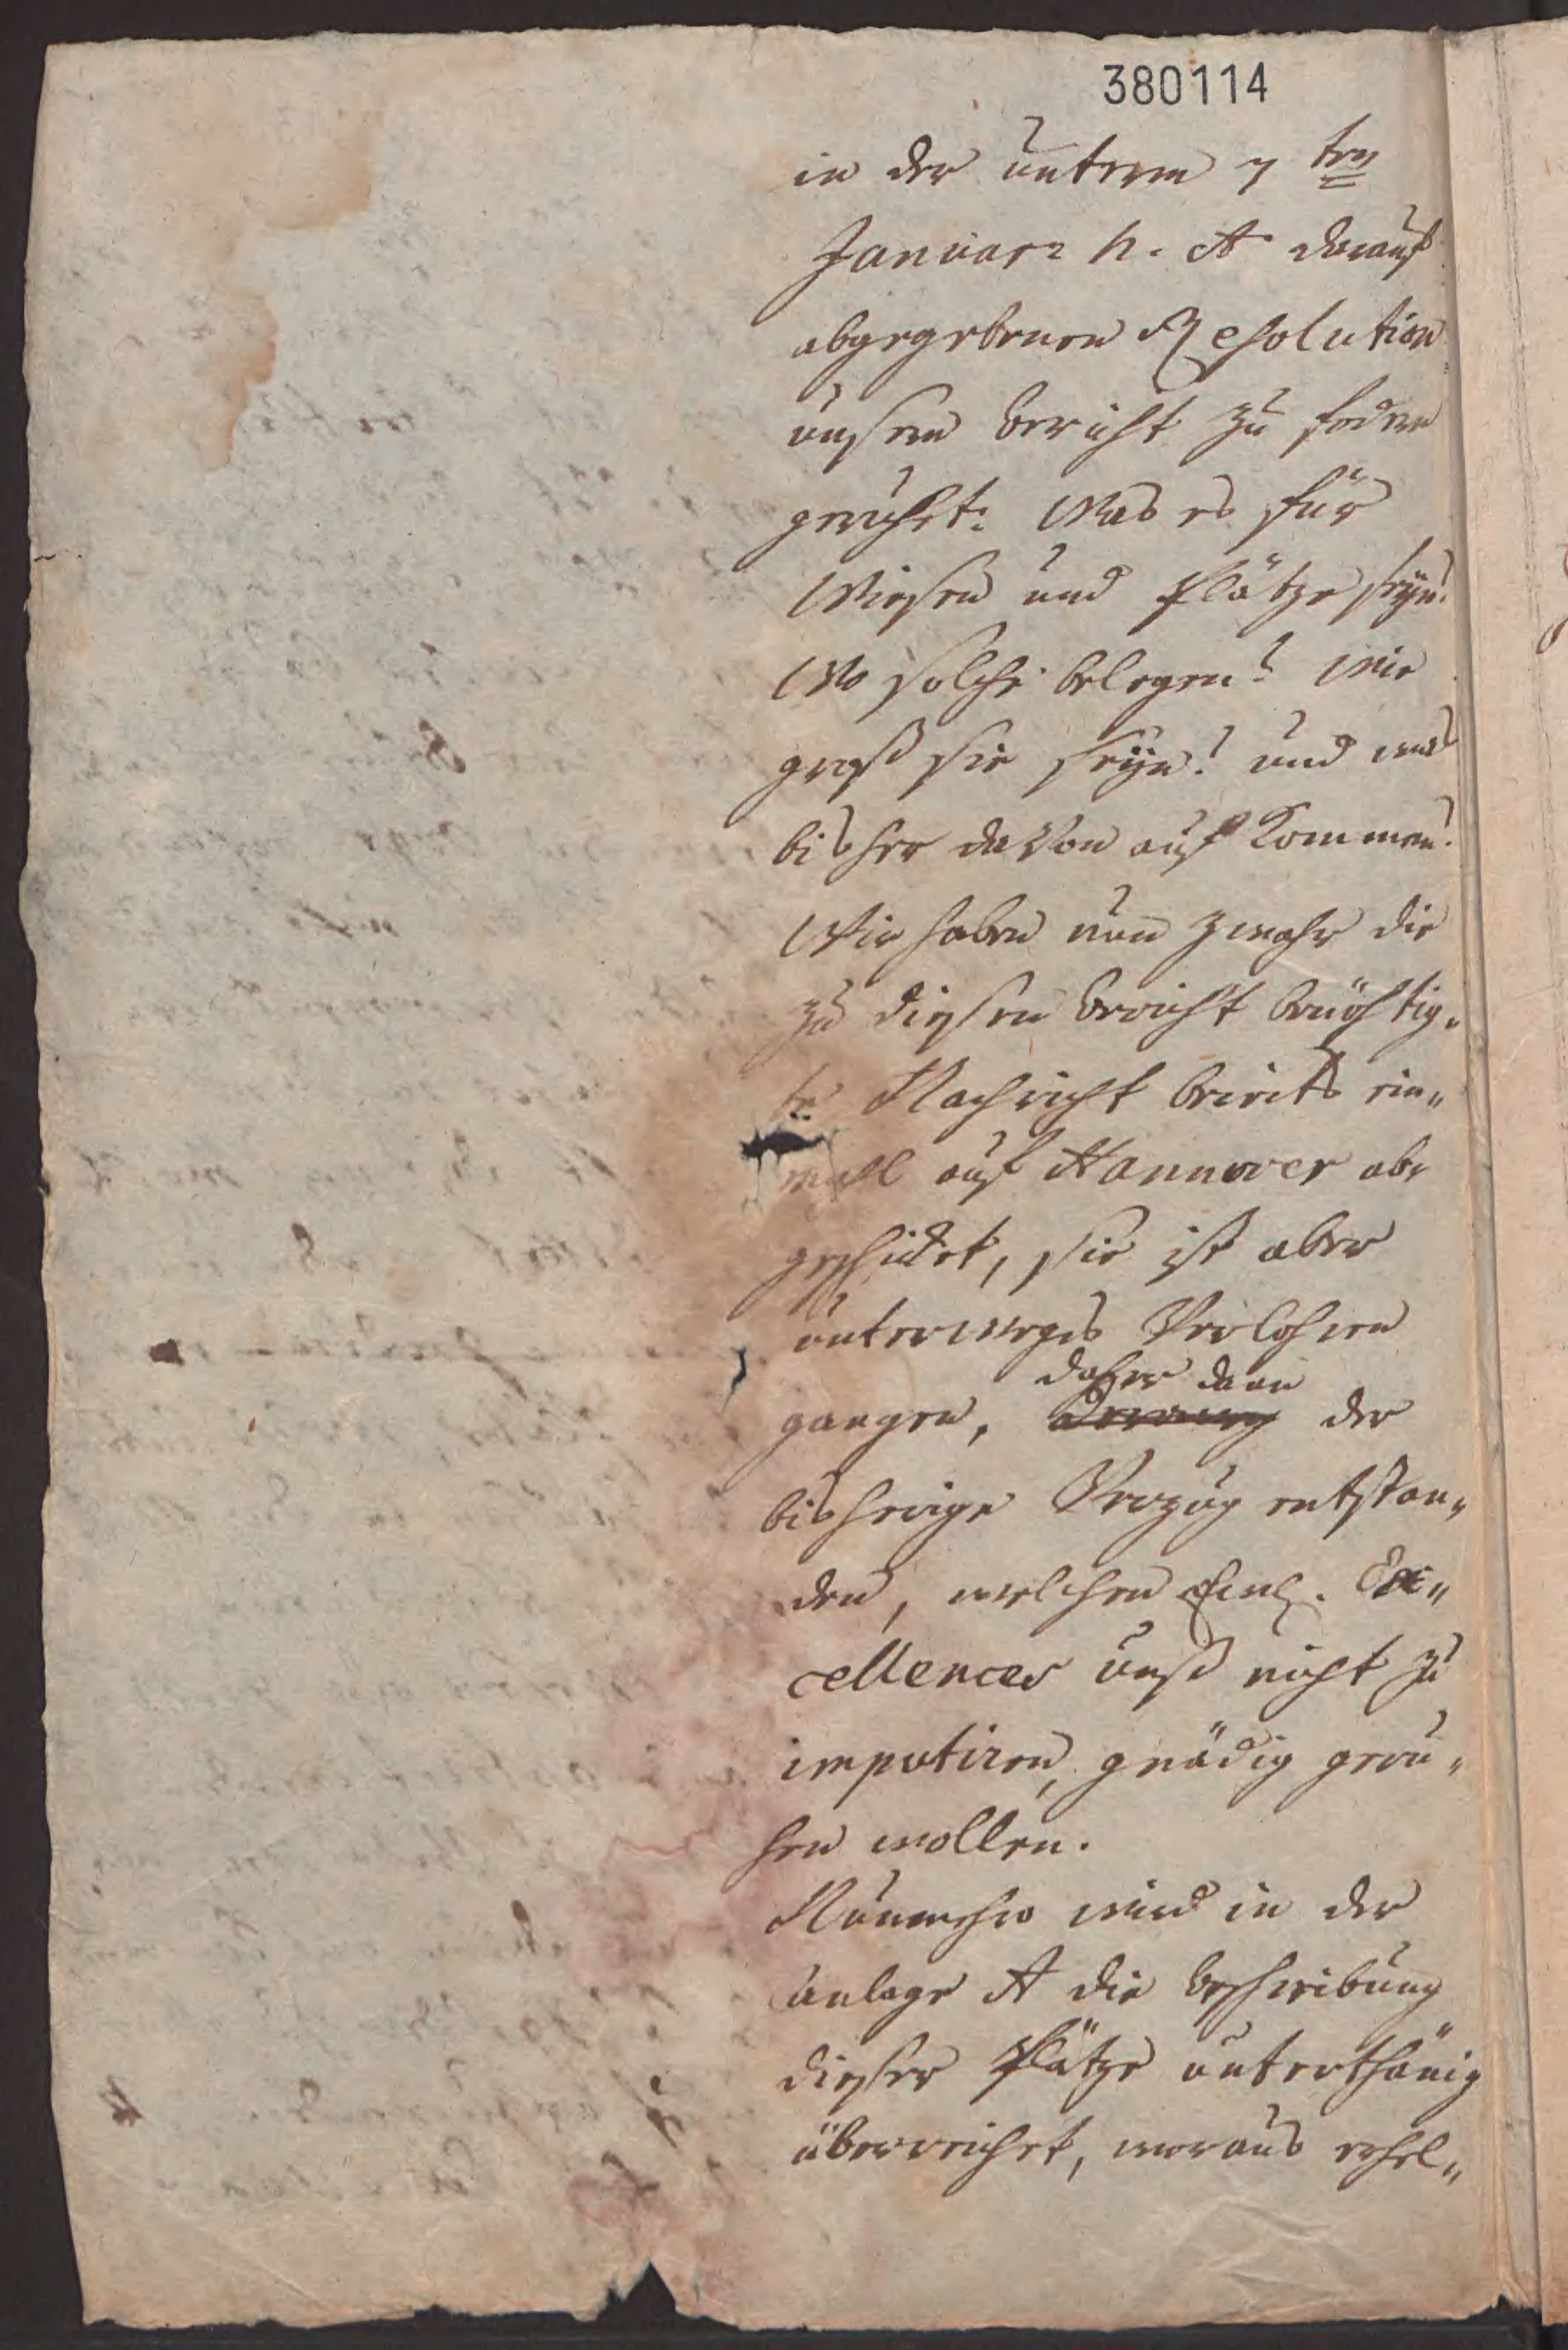 380114
in der unterm 7 ten
Januar h. A darauf
abgegebenen Resolution
unsern bericht zu fodern
geruhet: Was es für
Wiesen und Plätze seyn?
Wo solche belegen? Wie
groß sie seyn? und was
bisher davon auf kommen?
Wir haben nun zwahr die
zu diesen bericht benöhtig„
te Nachricht bereits ein„
mahl auf Hannover ab„
geschicket, sie ist aber
unterweges Verlohren
daher dann
gangen, der
bisherige Verzug entstan„
den, welchen Ex„
cellences unß nicht zu
imputiren, gnädig geru„
hen wollen.
Nunmehro wird in der
anlage A die beschreibung
dieser Plätze unterthänig
überreichet, woraus erhel„